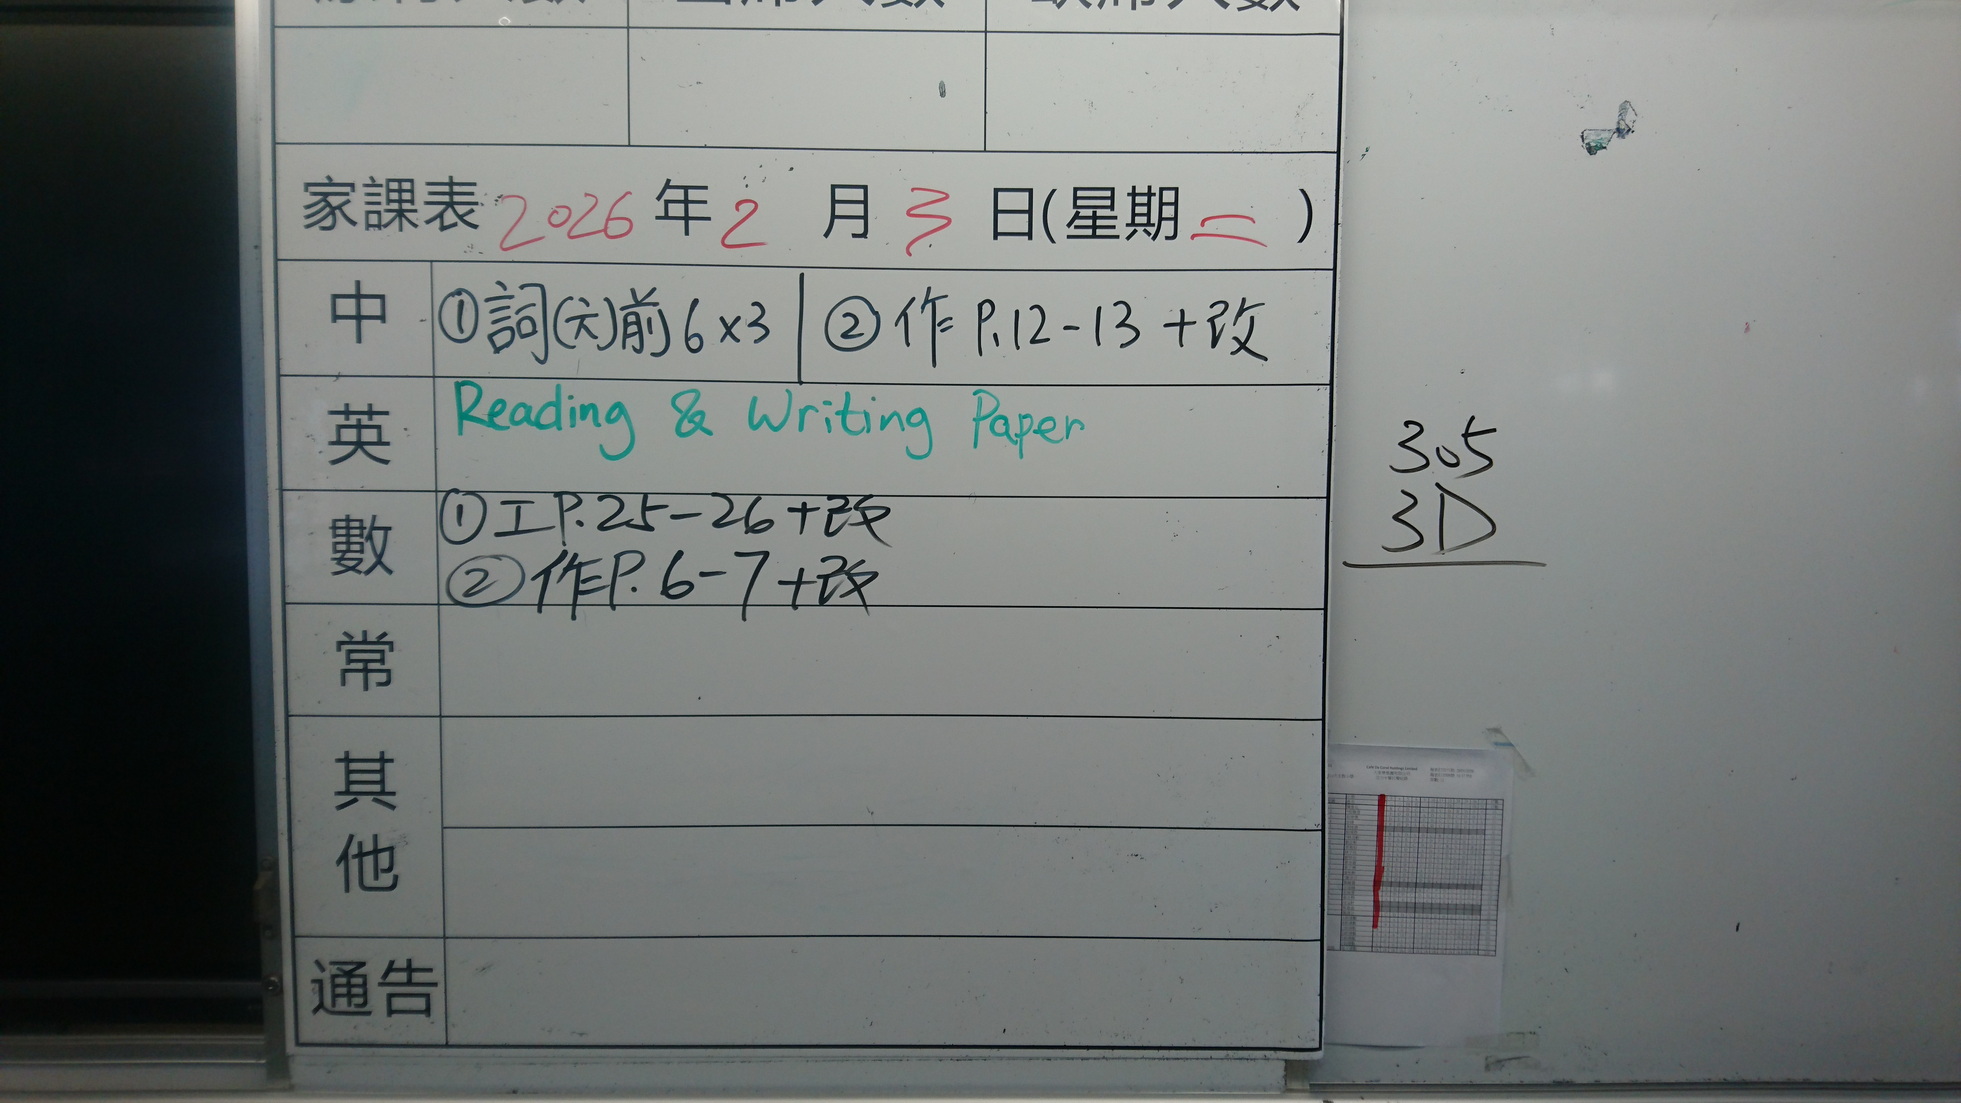 出席人數 缺席人數
家課表 2026 年 2 月 3 日(星期 二 )
中 ①詞(六)前6x3 | ②作P.12-13+改
英 Reading & Writing Paper
數 ①工P.25-26+改
②作P.6-7+改
常
其他
通告
305
3D